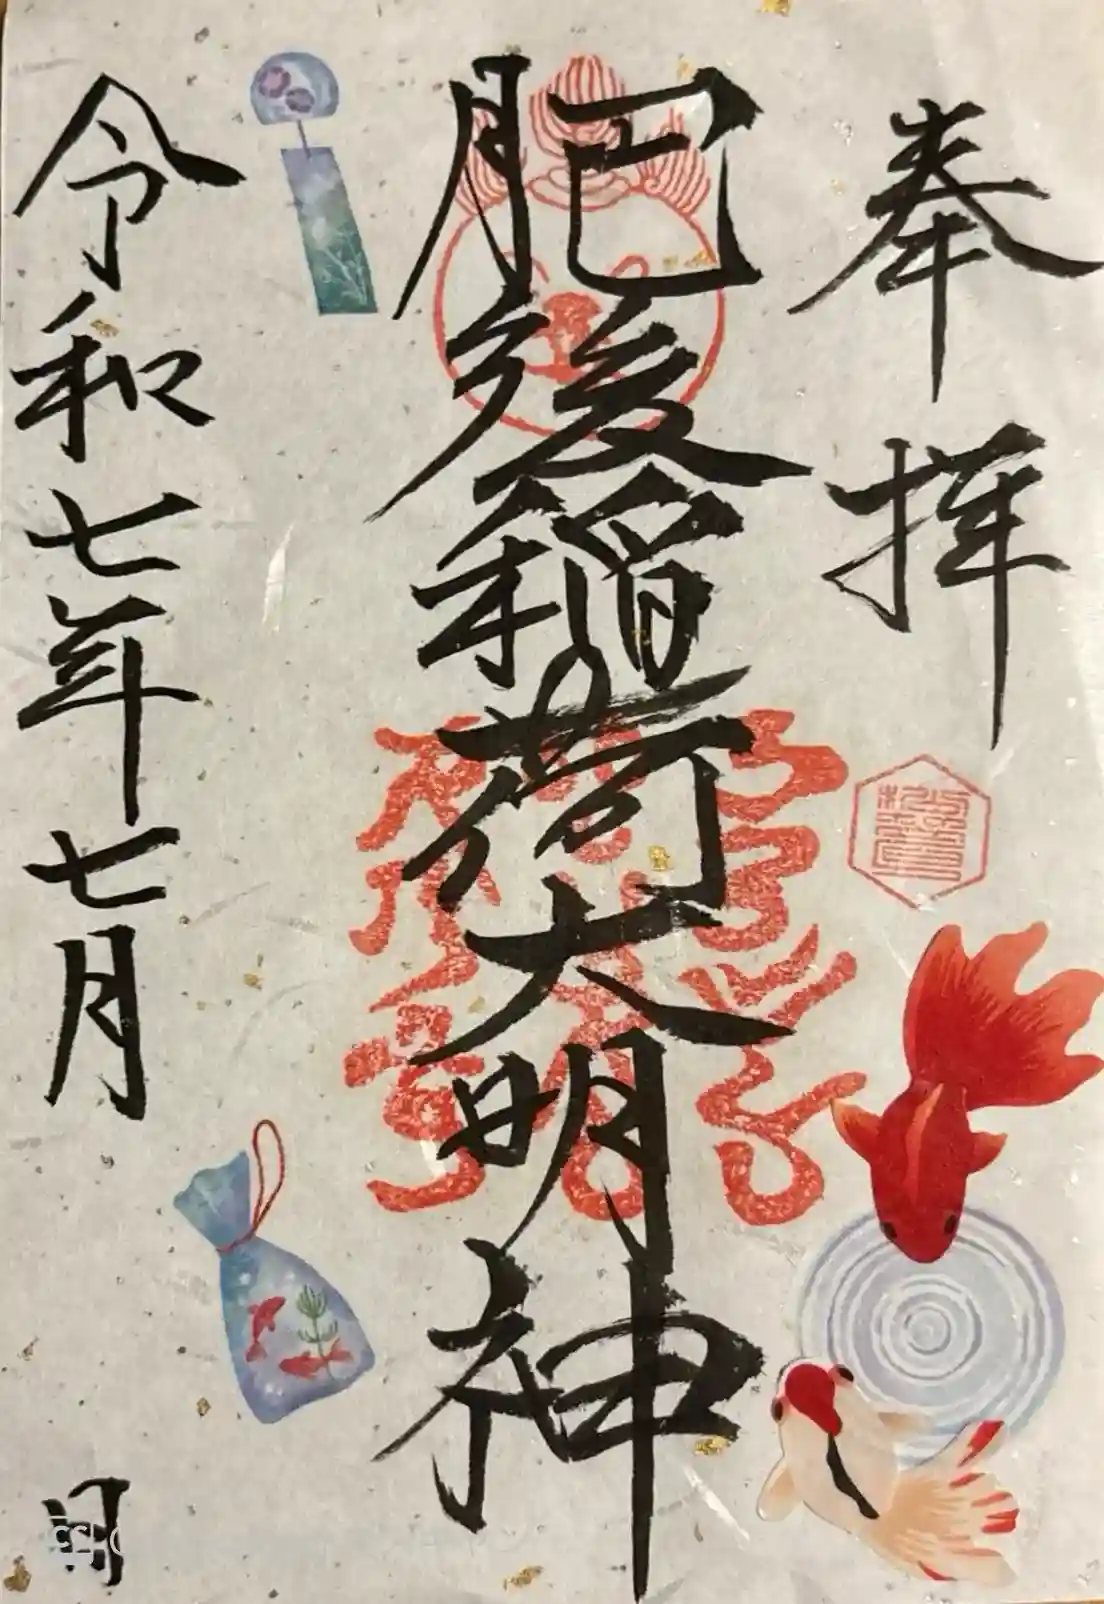 奉拝
肥後稲荷大明神
令和七年七月 日